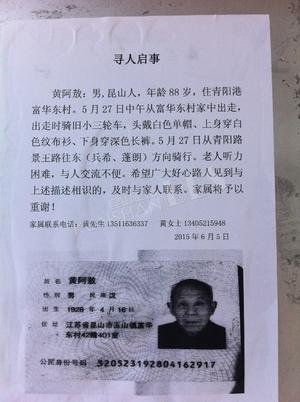 寻人启事
黄阿敖：男,昆山人，年龄 88 岁，住青阳港
富华东村。5 月 27 日中午从富华东村家中出走，
出走时骑旧小三轮车，头戴白色单帽、上身穿白
色纹布衫、下身穿深色长裤。5 月 27 日从青阳路
景王路往东（兵希、蓬朗）方向骑行。老人听力
困难，与人交流不便。希望广大好心路人见到与
上述描述相识的，及时与家人联系。家属将予以
重谢！
家属联系电话：黄先生 13511636337 黄女士 13405215948
2015 年 6 月 5 日
姓名 黄阿敖
性别 男 民族 汉
出生 1928 年 4 月 16 日
住址 江苏省昆山市玉山镇富华
东村42幢401室
公民身份号码 320523192804162917